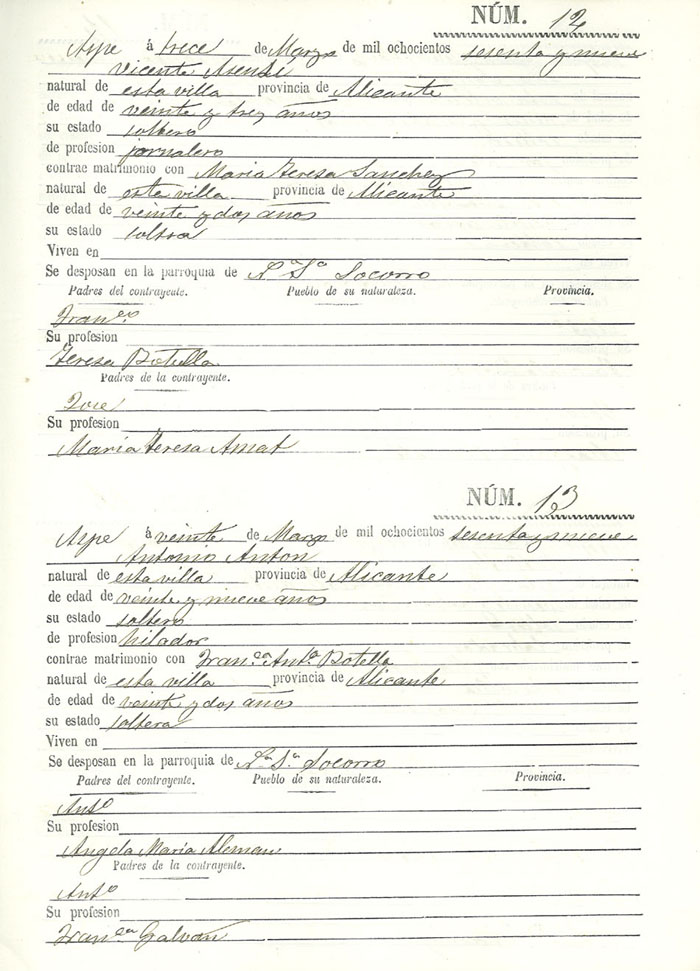 NÚM. 12
Aspe á trece de Marzo de mil ochocientos sesenta y nueve
Vicente Asensi
natural de esta villa provincia de Alicante
de edad de veinte y tres años
su estado soltero
de profesion jornalero
contrae matrimonio con Maria Teresa Sanchez
natural de esta villa provincia de Alicante
de edad de veinte y dos años
su estado soltera
Viven en
Se desposan en la parroquia de Nª Sª Socorro
Padres del contrayente. Pueblo de su naturaleza. Provincia.
Franco
Su profesion
Teresa Botella
Padres de la contrayente.
Jose
Su profesion
Maria Teresa Amat
NÚM. 13
Aspe á veinte de Marzo de mil ochocientos sesenta y nueve
Antonio Anton
natural de esta villa provincia de Alicante
de edad de veinte y nueve años
su estado soltero
de profesion hilador
contrae matrimonio con Franca Anta Botella
natural de esta villa provincia de Alicante
de edad de veinte y dos años
su estado soltera
Viven en
Se desposan en la parroquia de Nª Sª Socorro
Padres del contrayente. Pueblo de su naturaleza. Provincia.
Anto
Su profesion
Angela Maria Aleman
Padres de la contrayente.
Anto
Su profesion
Franca Galvañ